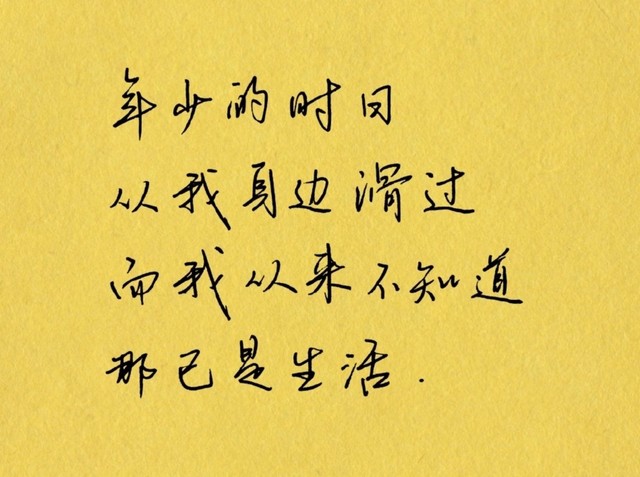 年少的时日
从我身边滑过
而我从来不知道
那已是生活.